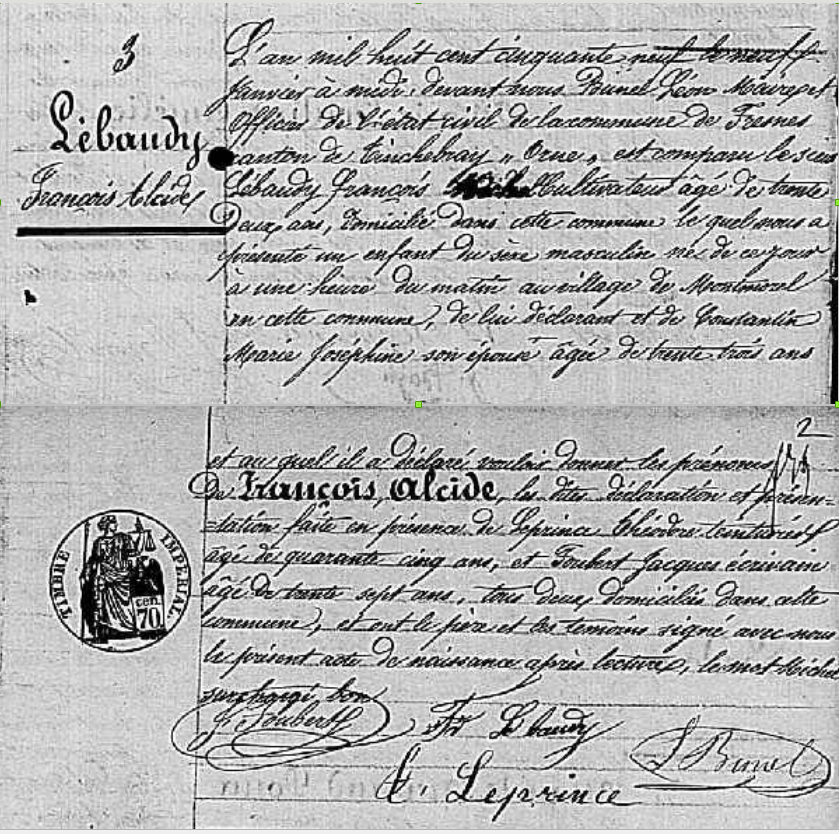 3
Lebaudy
François Alcide
L'an mil huit cent cinquante neuf le neuf
Janvier à midi, devant nous Bunel Léon Maire et
Officier de l'état civil de la commune de Fresnes
canton de Tinchebray „ Orne „ est comparu le sieur
Lébaudy François Michel Cultivateur âgé de trente
Deux ans, Domicilié dans cette commune le quel nous a
présenté un enfant du sèxe masculin né de ce jour
à une heure du matin au village de Montmorel
en cette commune, de lui déclarant et de Constantin
Marie Joséphine son épouse âgée de trente trois ans
2
et au quel il a déclaré vouloir donner les prénoms
De François, Alcide, les dites déclaration et présen-
-tation faite en présence de Leprince Théodore teinturier
âgé de quarante cinq ans, et Joubert Jacques écrivain
âgé de trente sept ans, tous deux domiciliés dans cette
commune, et ont le père et les temoins signé avec nous
le présent acte de naissance après lecture, le mot Michel
surchargé bon
TIMBRE IMPERIAL
70 cen.
J. Joubert
Fr Lebaudy
L Bunel
t. Leprince